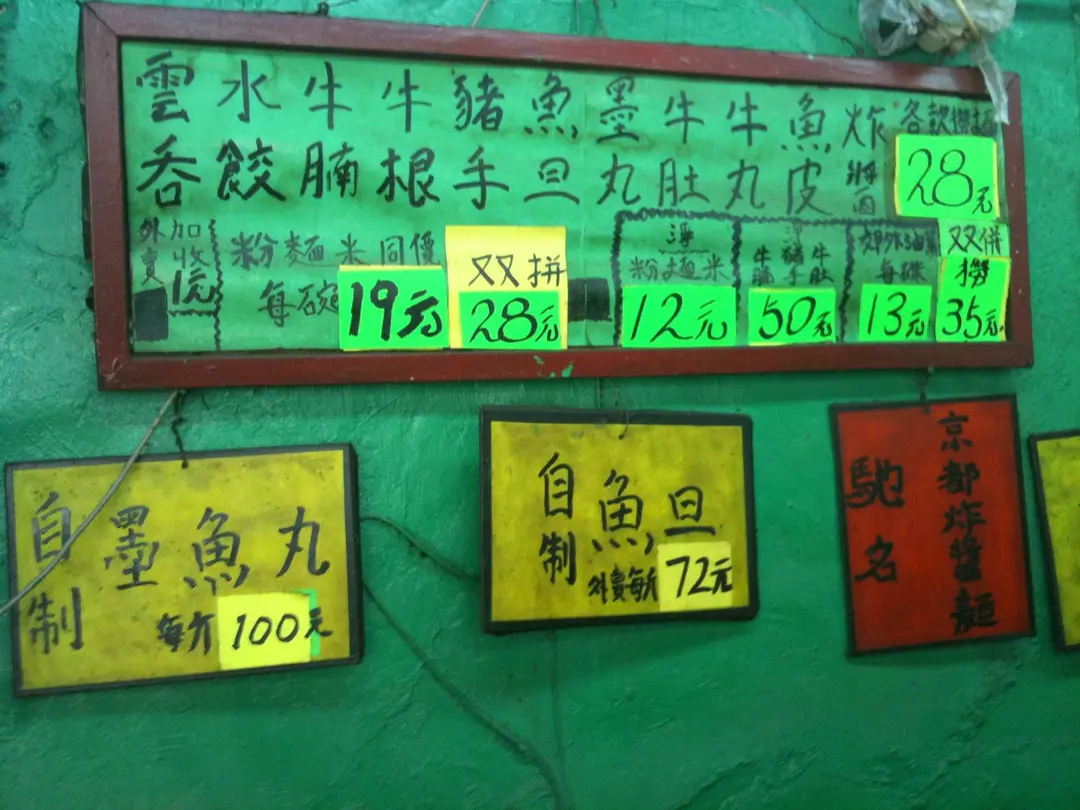 雲吞
水餃
牛腩
牛根
豬手
魚旦
墨丸
牛肚
牛丸
魚皮
炸將面
各款撈
28元
外賣
加收1元
粉麵米同價
每碗
19元
双拼
28元
淨
粉麵米
12元
牛腩
淨豬手
牛肚
50元
郊外油菜
每碟
13元
双併
撈
35元
自制
墨魚丸
每斤
100元
自制
魚旦
外賣每斤
72元
馳名
京都炸醬麵